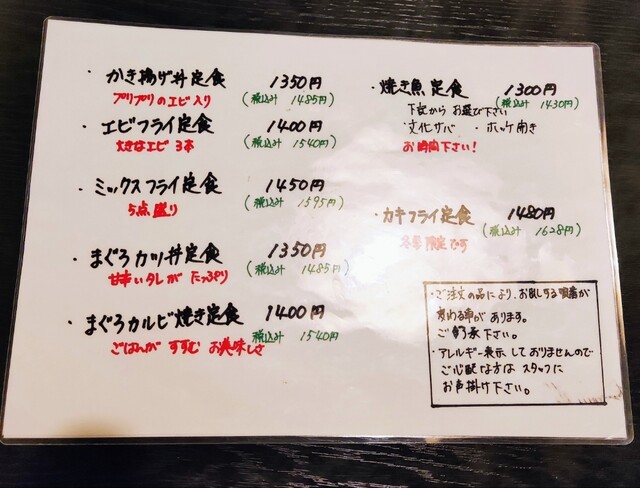 ・かき揚げ丼定食 1350円
プリプリのエビ入り (税込み 1485円)
・エビフライ定食 1400円
大きなエビ 3本 (税込み 1540円)
・ミックスフライ定食 1450円
5点盛り (税込み 1595円)
・まぐろカツ丼定食 1350円
甘辛いタレが たっぷり (税込み 1485円)
・まぐろカルビ焼き定食 1400円
ごはんが すすむ お美味しさ (税込み 1540円)
・焼き魚定食 1300円
(税込み 1430円)
下記から お選び下さい
・文化サバ ・ホッケ開き
お時間下さい!
・カキフライ定食 1480円
冬季限定です (税込み 1628円)
・ご注文の品により、お出しする順番が
変わる事が あります。
ご了承 下さい。
・アレルギー表示 しておりませんので
ご心配な方は スタッフに
お声掛け下さい。